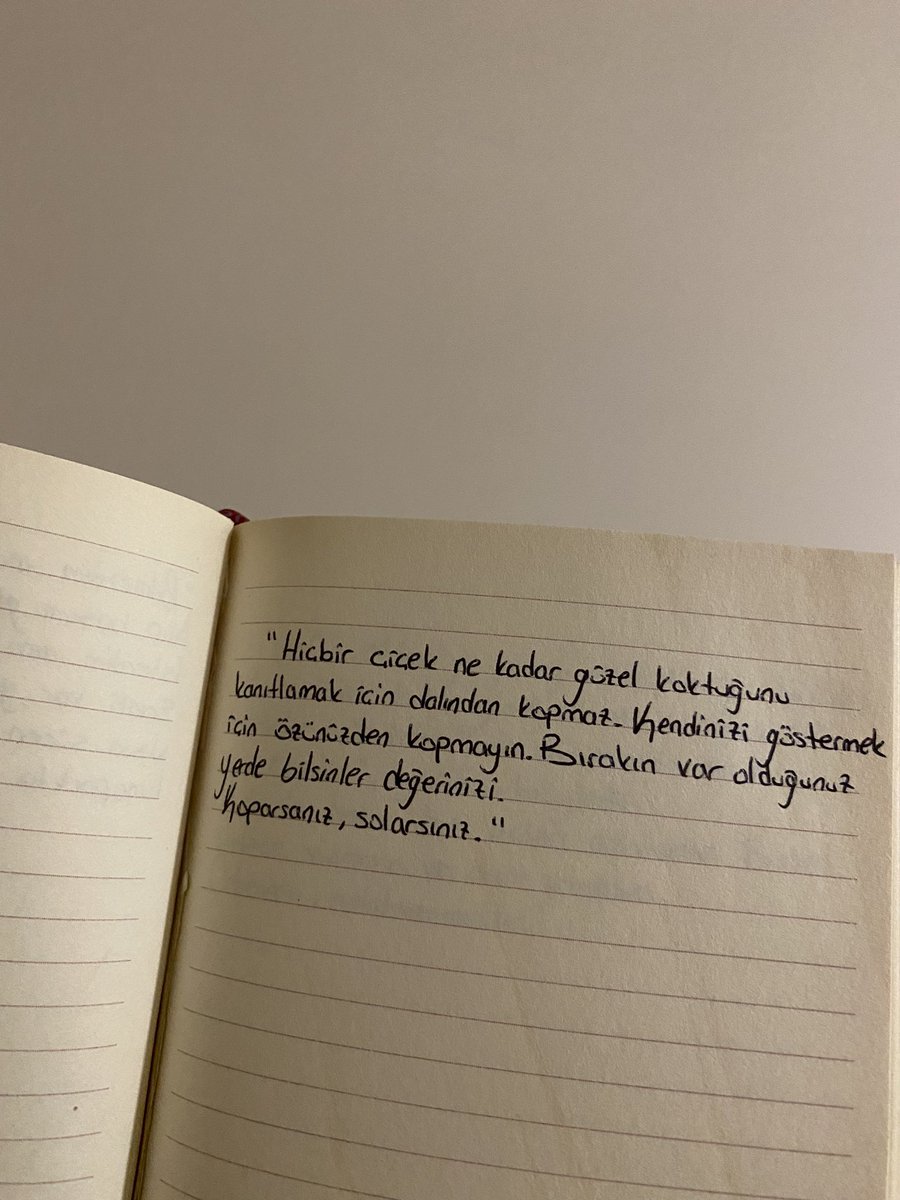 "Hiçbir çiçek ne kadar güzel koktuğunu
kanıtlamak için dalından kopmaz. Kendinizi göstermek
için özünüzden kopmayın. Bırakın var olduğunuz
yerde bilsinler değerinizi.
Koparsanız, solarsınız."